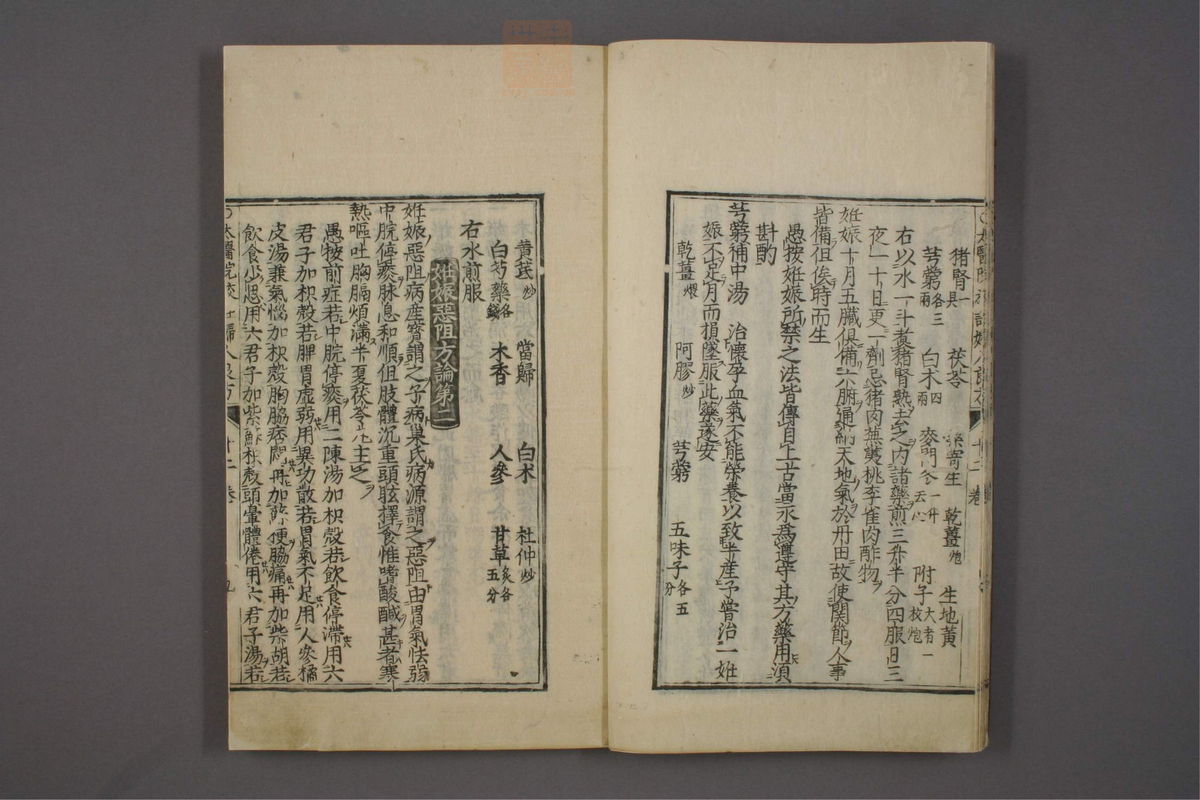 猪腎一具 茯苓 桑寄生 乾薑炮 生地黃
芎藭各三兩 白朮四兩 麥門冬一升去心 附子大者一枚炮
右以水一斗煑猪腎熟去之内諸藥煎三升半分四服日三
夜一十日更一劑忌猪肉蕪荑桃李雀肉酢物
姙娠十月五臟俱備六腑通納天地氣於丹田故使關節人事
皆備但俟時而生
愚按姙娠所禁之法皆傳自上古當永爲遵守其方藥用須
斟酌
芎藭補中湯 治懷孕血氣不能榮養以致半産予嘗治一姙
娠不足月而損墜服此藥遂安
乾薑煨 阿膠炒 芎藭 五味子各五分
黃芪炒 當歸 白朮 杜仲炒
白芍藥各錢 木香 人參 甘草炙各五分
右水煎服
姙娠惡阻方論第二
姙娠惡阻病産寳謂之子病巢氏病源謂之惡阻由胃氣怯弱
中脘停痰脉息和順但肢體沉重頭眩擇食惟嗜酸鹹甚者寒
熱嘔吐胸膈煩滿半夏茯苓丸主之
愚按前症若中脘停痰用二陳湯加枳殻若飲食停滯用六
君子加枳殻若脾胃虛弱用異功散若胃氣不足用人參橘
皮湯兼氣惱加枳殻胸脇痞悶再加蘇梗脇痛再加柴胡若
飲食少思用六君子加紫蘇枳殻頭暈體倦用六君子湯若